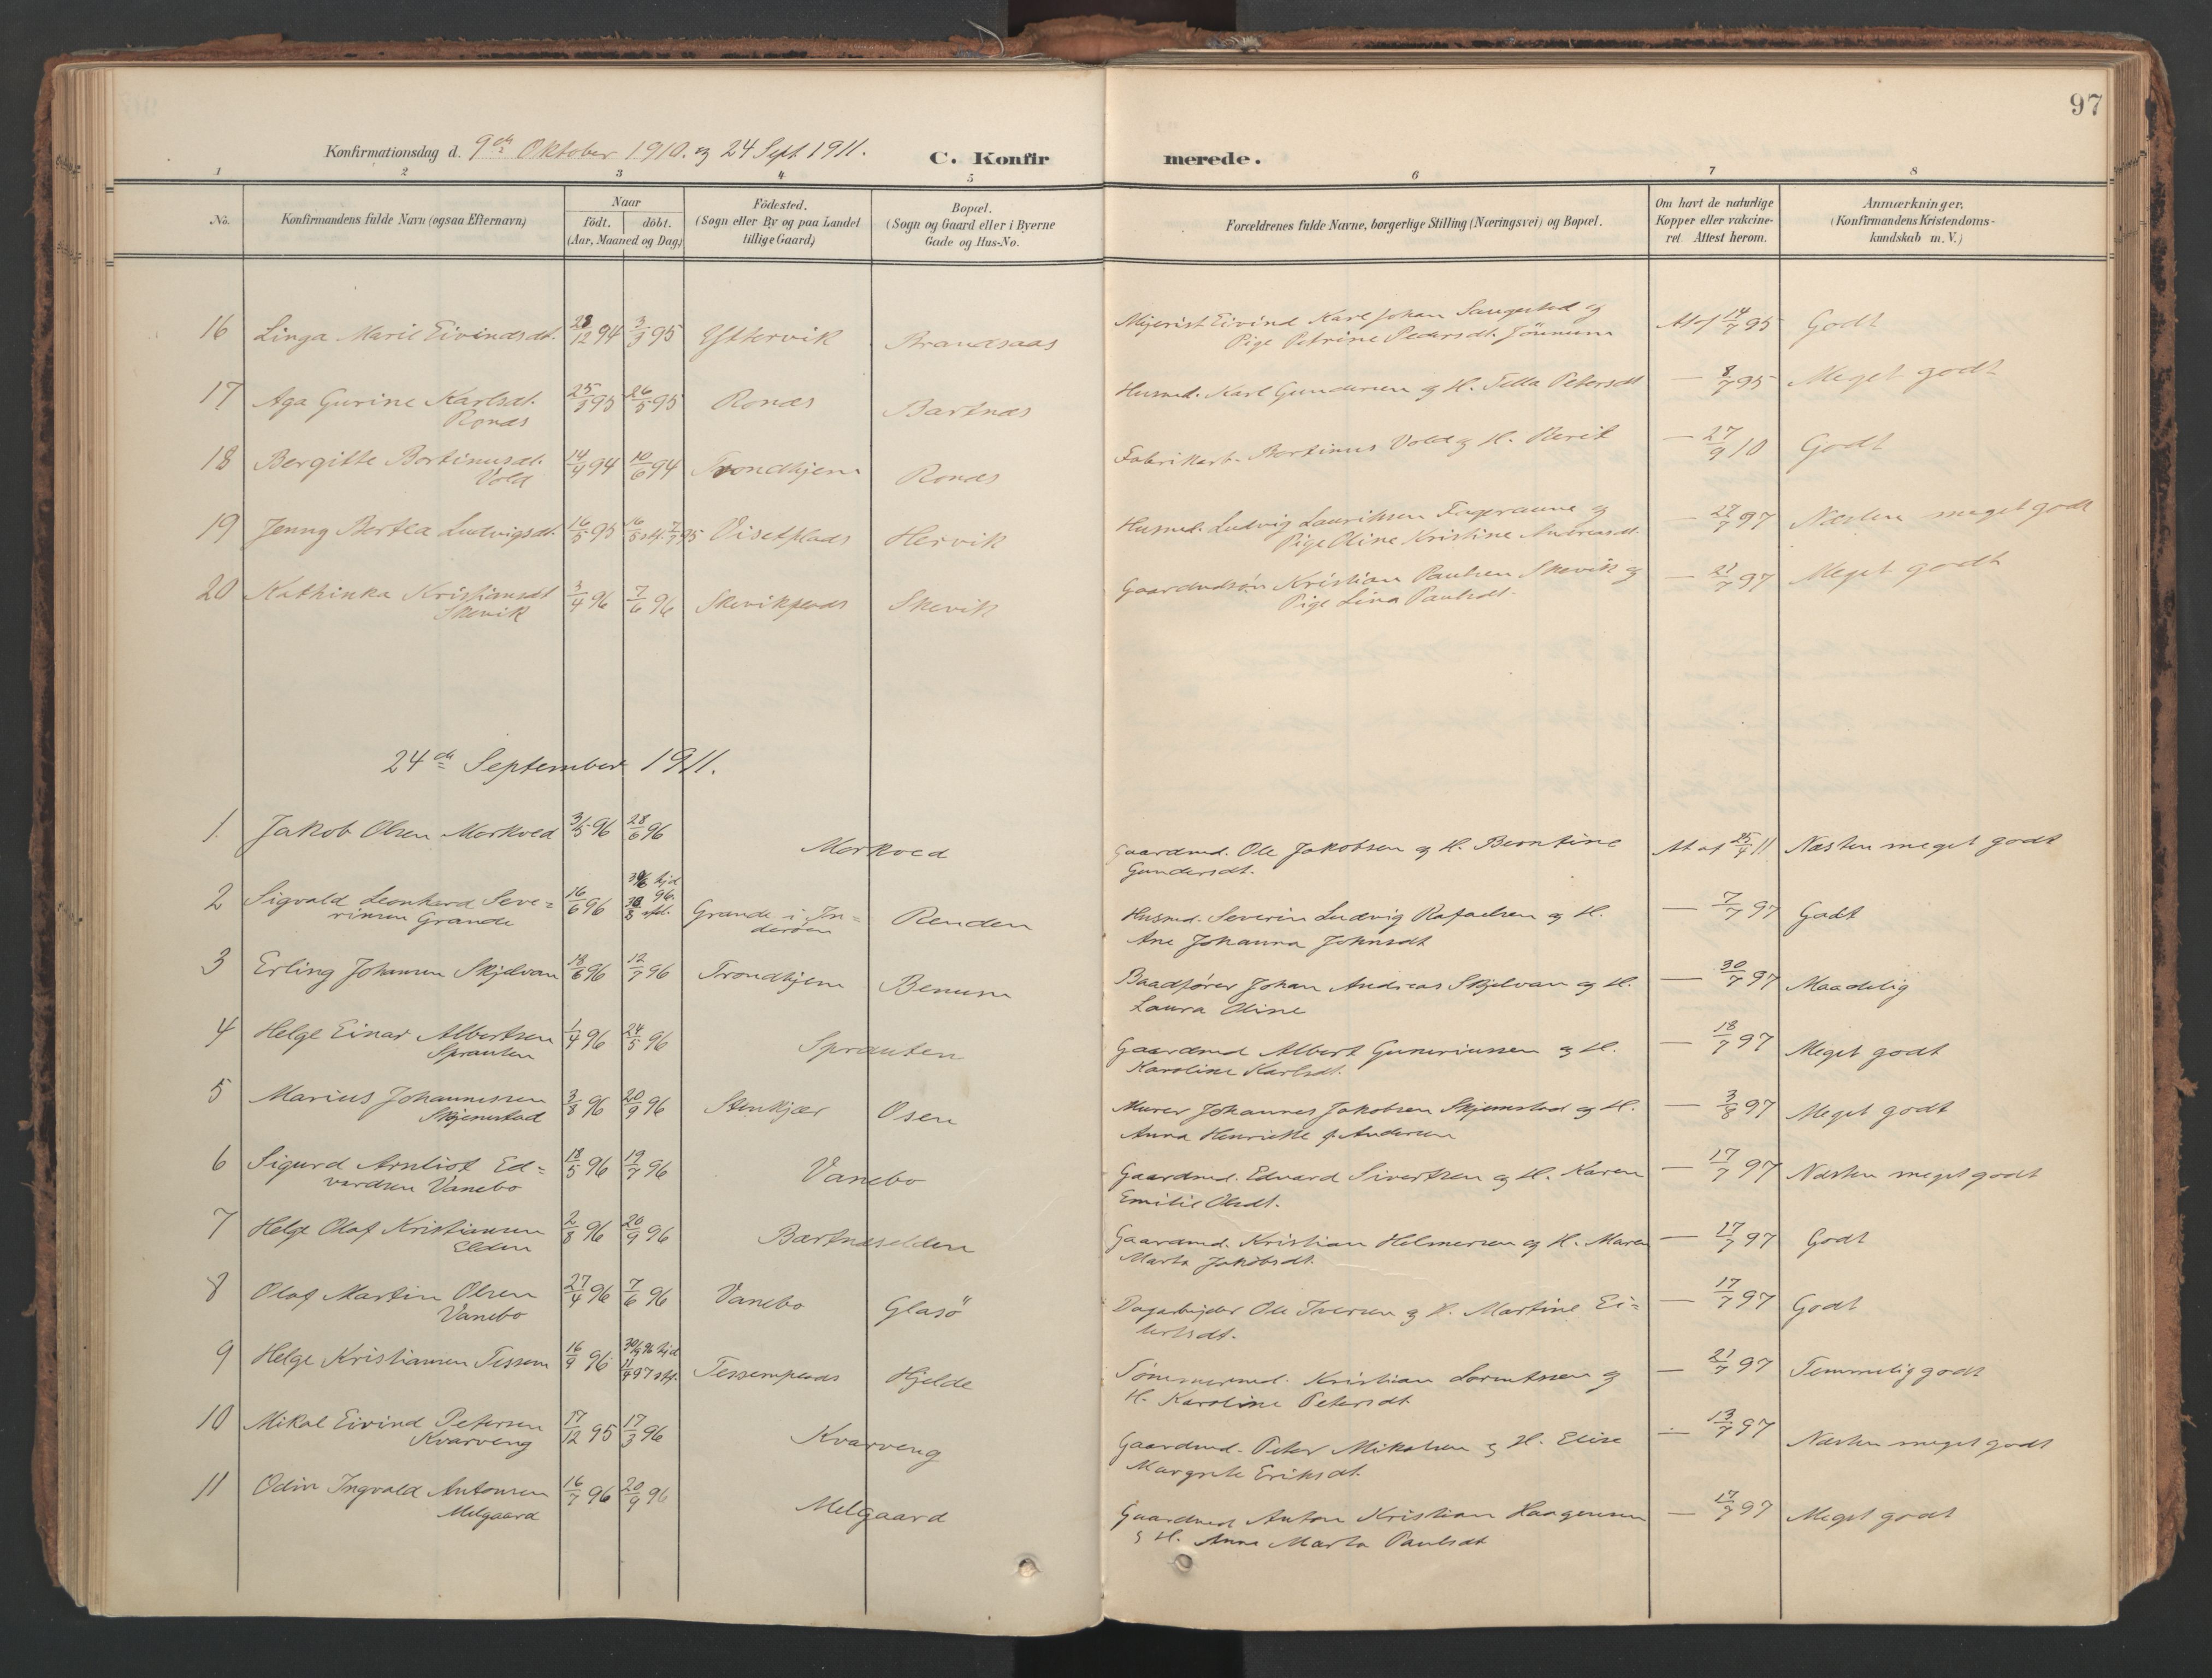 97
Konfirmationsdag d. 9de Oktober 1910. og 24 Sept 1911.
C. Konfirmerede.
1 2 3 4 5 6 7 8
No.
Konfirmandens fulde Navn (ogsaa Efternavn)
Naar
födt. döbt.
(Aar, Maaned og Dag)
Födested.
(Sogn eller By og paa Landet
tillige Gaard)
Bopæl.
(Sogn og Gaard eller i Byerne
Gade og Hus-No.
Forældrenes fulde Navne, borgerlige Stilling (Næringsvei) og Bopæl.
Om havt de naturlige
Kopper eller vakcine-
ret. Attest herom.
Anmærkninger.
(Konfirmandens Kristendoms-
kundskab m. V.)
16 Linga Marie Eivindsdt. 28/12 94 3/3 95 Ystervik Brandsaas Mejerist Eivind Karl Johan Saugestad og At af 14/7 95 Godt
Pige Petrine Pedersdt.
17 Aga Gurine Karlsdt. 25/3 95 26/5 95 Ronæs Bartnæs Husmd. Karl Gundersen og H. Petersdt — 8/7 95 Meget godt
Ronæs
18 Bergitte Bortinusdt. 14/4 94 10/6 94 Trondhjem Ronæs Fabrikarb. Bortinus Vold og H. Berit — 27/9 10 Godt
Vold
19 Jenny Bertea Ludvigsdt. 16/5 95 16/5 st. 7/7 95 Visetplads Hervik Husmd. Ludvig Lauritsen og — 27/7 97 Næsten meget godt
Pige Oline Kristine Andreasdt.
20 Kathinka Kristiansdt 3/4 96 7/6 96 Skevikplads Skevik Gaardmdsön Kristian Paulsen Skevik og — 21/7 97 Meget godt
Skevik Pige Lina Paulsdt.
24de September 1911.
1. Jakob Olsen Morkved 3/5 96 28/6 96 Morkved Gaardmd. Ole Jakobsen og H. Berntine At af 25/4 11 Næsten meget godt
Gundersdt.
2 Sigvald Leonhard Seve= 16/6 96 hjd 96. Grande i In- Renden Husmd. Severin Ludvig Rafaelsen og H. — 7/7 97 Godt
rinsen Grande deröen Ane Johanna Johnsdt
3 Erling Johansen Skjelvan 18/6 96 12/7 96 Trondhjem Benum Baadförer Johan Andreas Skjelvan og H. — 30/7 97 Maadelig
Laura Oline
4 Helge Einar Albertsen 1/4 96 24/5 96 Sprauten Gaardmd Albert Guneriussen og H. — 18/7 97 Meget godt
Sprauten Karoline Karlsdt.
5 Marius Johannessen 3/8 96 20/9 96 Stenkjær Osen Murer Johannes Jakobsen Skjemstad og H. — 3/8 97 Meget godt
Skjemstad Anna Henriette f. Andersen
6 Sigurd Arnliot Ed= 18/5 96 19/7 96 Vanebo Gaardmd. Edvard Sivertsen og H. Karen — 17/7 97 Næsten meget godt
vardsen Vanebo Emilie Olsdt.
7 Helge Olaf Kristiansen 2/8 96 20/9 96 Bartnæselden Gaardmd. Kristian Helmersen og H. Maren — 17/7 97 Godt
Elden Marta Jakobsdt.
8 Olaf Martin Olsen 27/4 96 7/6 96 Vanebo Glasö Dagarbejder Ole Iversen og H. Martine Ei= — 17/7 97 Godt
Vanebo lertsdt.
9 Helge Kristiansen Tessem 16/9 96 30/9 96 hjd Tessemplads Hjelde Tömmermd. Kristian Lorentssen og — 21/7 97 Temmelig godt
11/4 97 stf. H. Karoline Petersdt
10 Mikal Eivind Petersen 17/12 95 17/3 96 Kvarveng Gaardmd. Peter Mikalsen og H. Elise — 13/7 97 Næsten meget godt
Kvarveng Margrete Eriksdt.
11 Odin Ingvald Antonsen 16/7 96 20/9 96 Melgaard Gaardmd Anton Kristian Haagensen — 17/7 97 Meget godt
Melgaard og H. Anna Marta Paulsdt